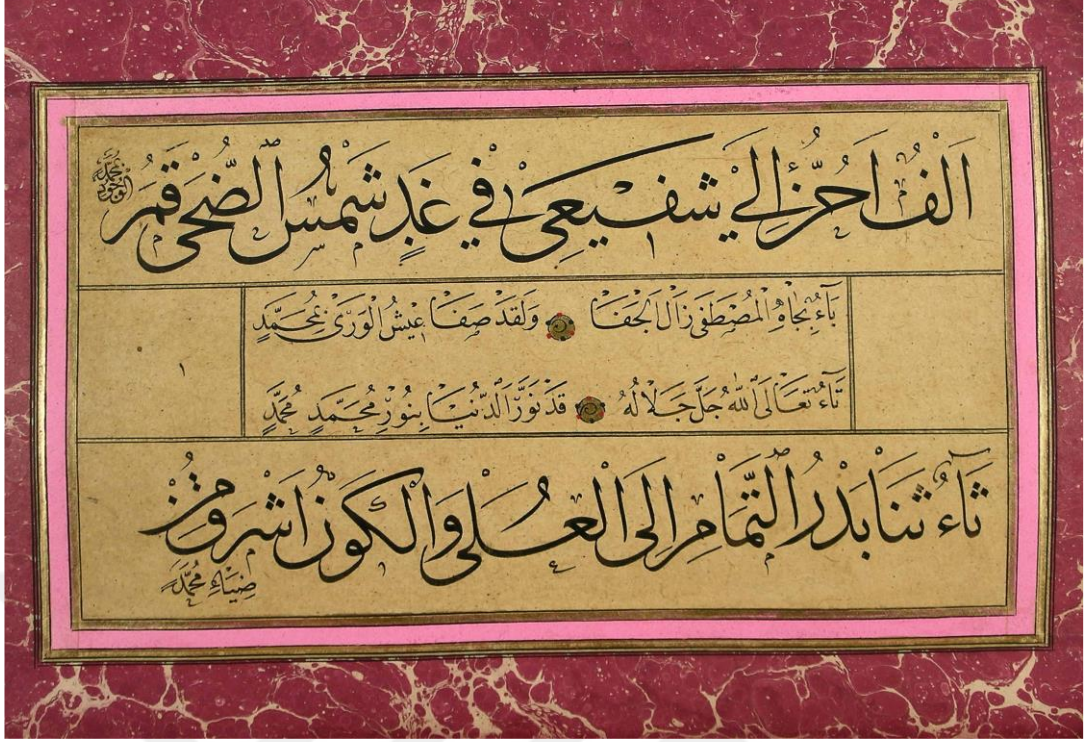 اَلْفُ اَحِنُّ اِلَي شَفِيعِى فِي غَدٍ شَمْسُ الضُّحٰى قَمَرُ
الوجود محمد
بَاءٌ بِجَاهِ الْمُصْطَفَى زَالَ الْجَفَا وَلَقَدْ صَفَا عَيْشُ الْوَرَى بِمُحَمَّدٍ
تَاءٌ تَعَالَى اللهُ جَلَّ جَلَالُهُ قَدْ نَوَّرَ الدُّنْيَا بِنُورِ مُحَمَّدٍ مُحَمَّدٍ
ثَاءٌ ثَنَا بَدْرُ التَّمَامِ اِلَى الْعُلٰى وَالْكَوْنُ اَشْرَقَ مِنْ
ضِيَاءِ مُحَمَّدٍ